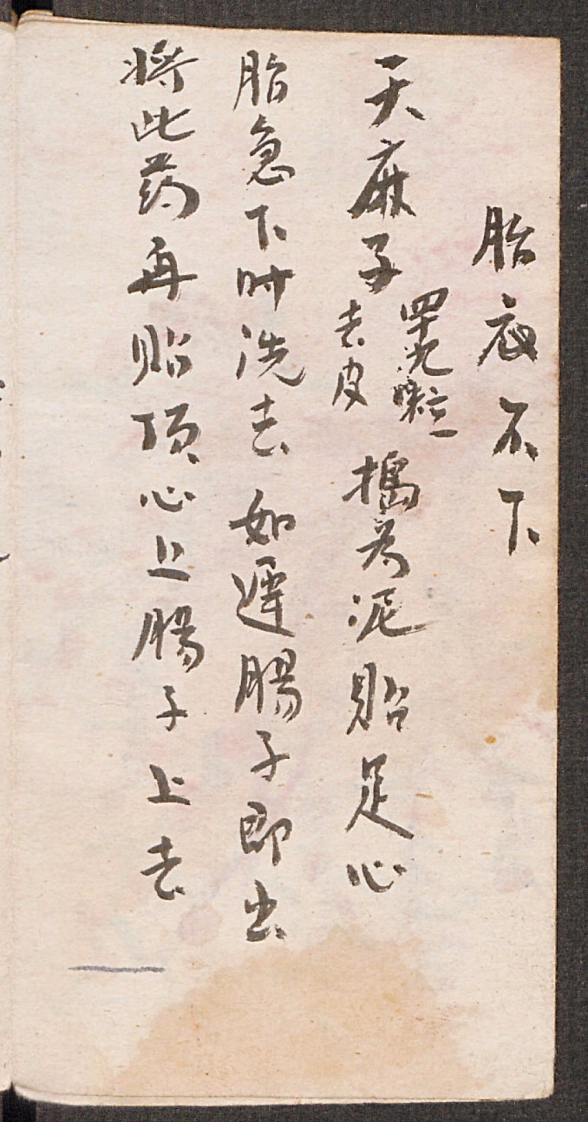 胎衣不下
天麻子四十九粒去皮搗为泥贴足心
胎急下时洗去如遲腸子即出
将此药再贴顶心上腸子上去